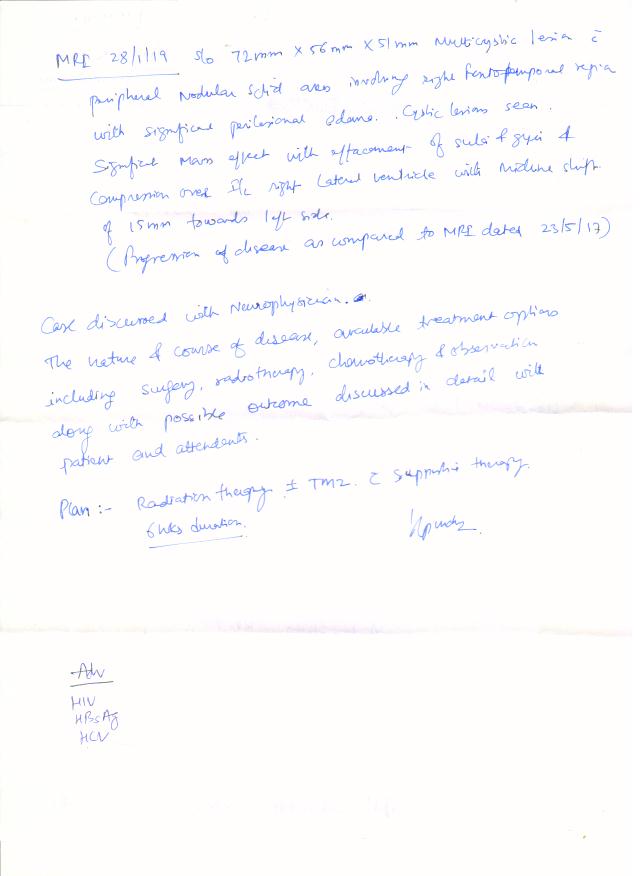 MRI 28/1/19 s/o 72mm X 56mm X 51mm Multicystic lesion c̄
peripheral Nodular Solid area involving right frontotemporal region
with significant perilesional edema. Cystic lesions seen.
Significant Mass effect with effacement of sulci & gyri &
Compression over I/L right Lateral ventricle with midline shift
of 15mm towards left side.
(Progression of disease as compared to MRI dated 23/5/17)
Case discussed with Neurophysician.
The nature & course of disease, available treatment options
including surgery, radiotherapy, chemotherapy & observation
along with possible outcome discussed in detail with
patient and attendents.
Plan :- Radiation therapy ± TMZ. c̄ supportive therapy.
6 wks duration.
Adv
HIV
HBsAg
HCV